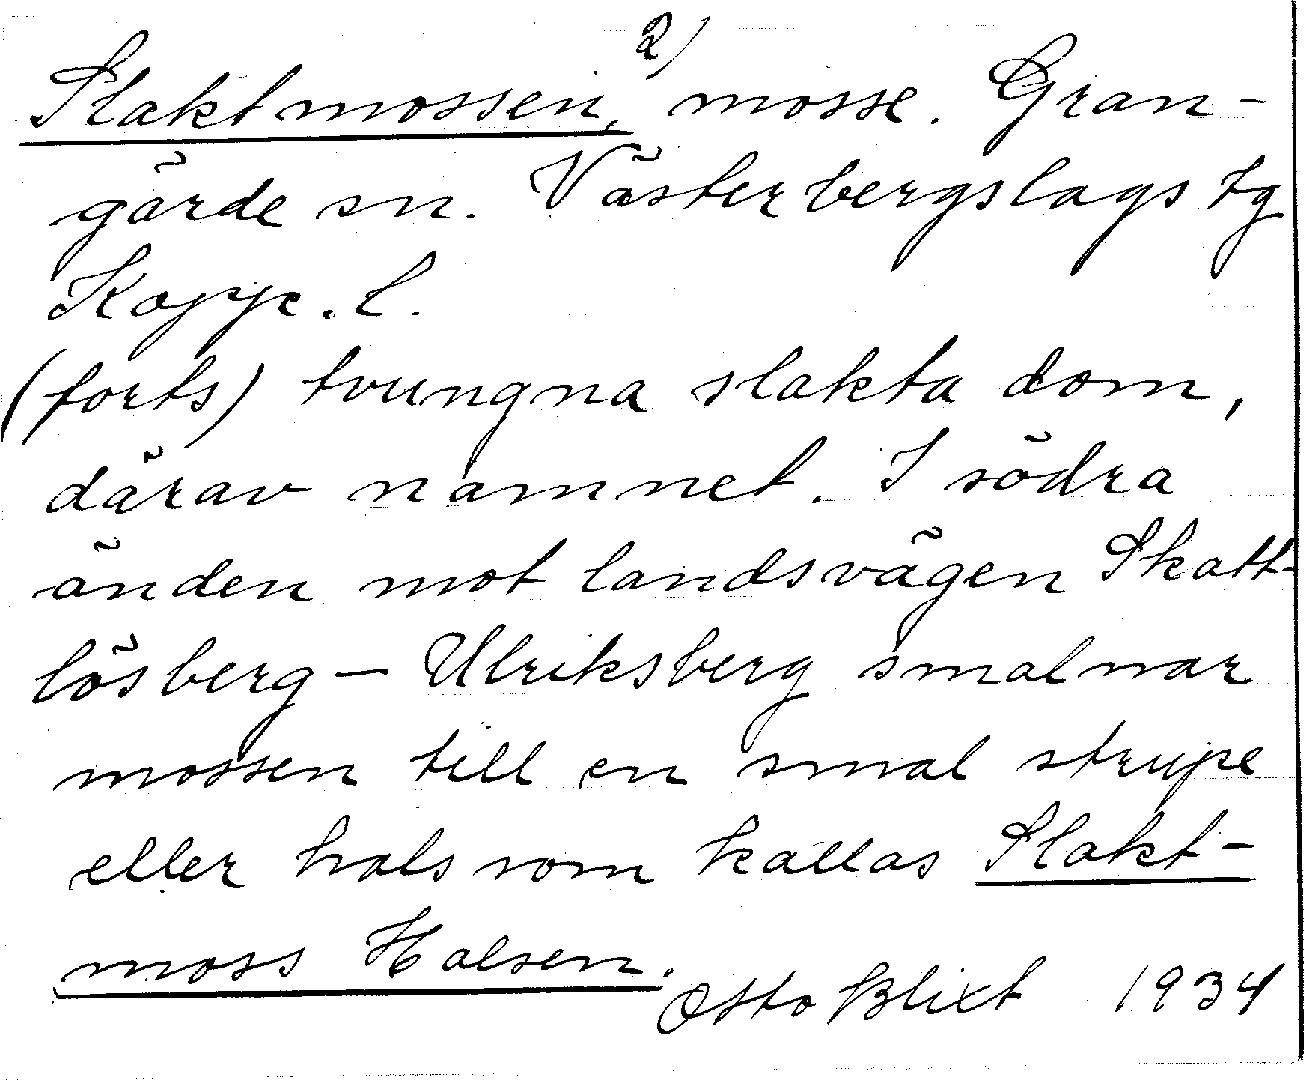 2)
Slaktmossen, mosse. Gran-
gärde sn. Västerbergslags tg
Koppe. l.
(forts) tvungna slakta dom,
därav namnet. I södra
änden mot landsvägen Skatt-
lösberg - Ulriksberg smalnar
mossen till en smal strupe
eller hals som kallas Slakt-
moss Halsen.
Otto Blixt 1934